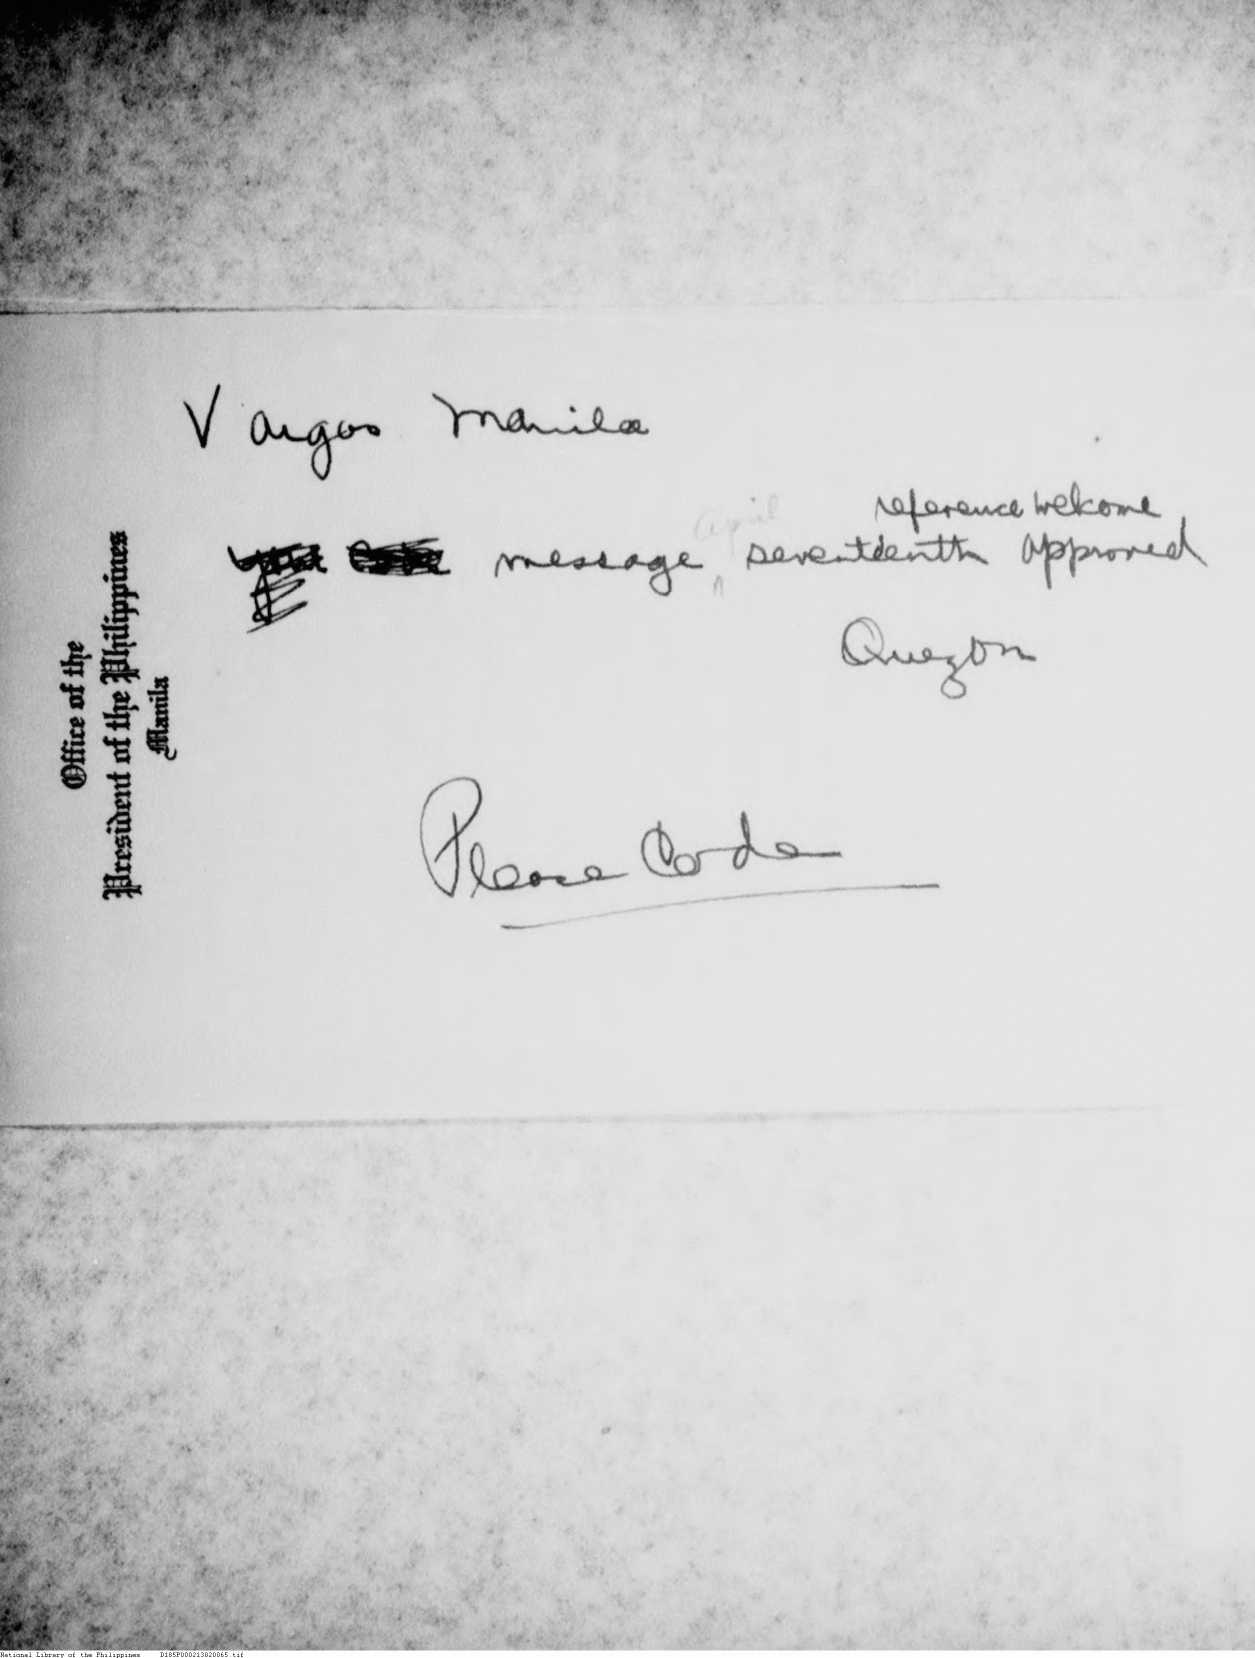 Office of the
President of the Philippines
Manila
Vargas Manila
reference welcome
message april seventeenth approved
Quezon
Please Code
National Library of the Philippines D185P000213820065.tif